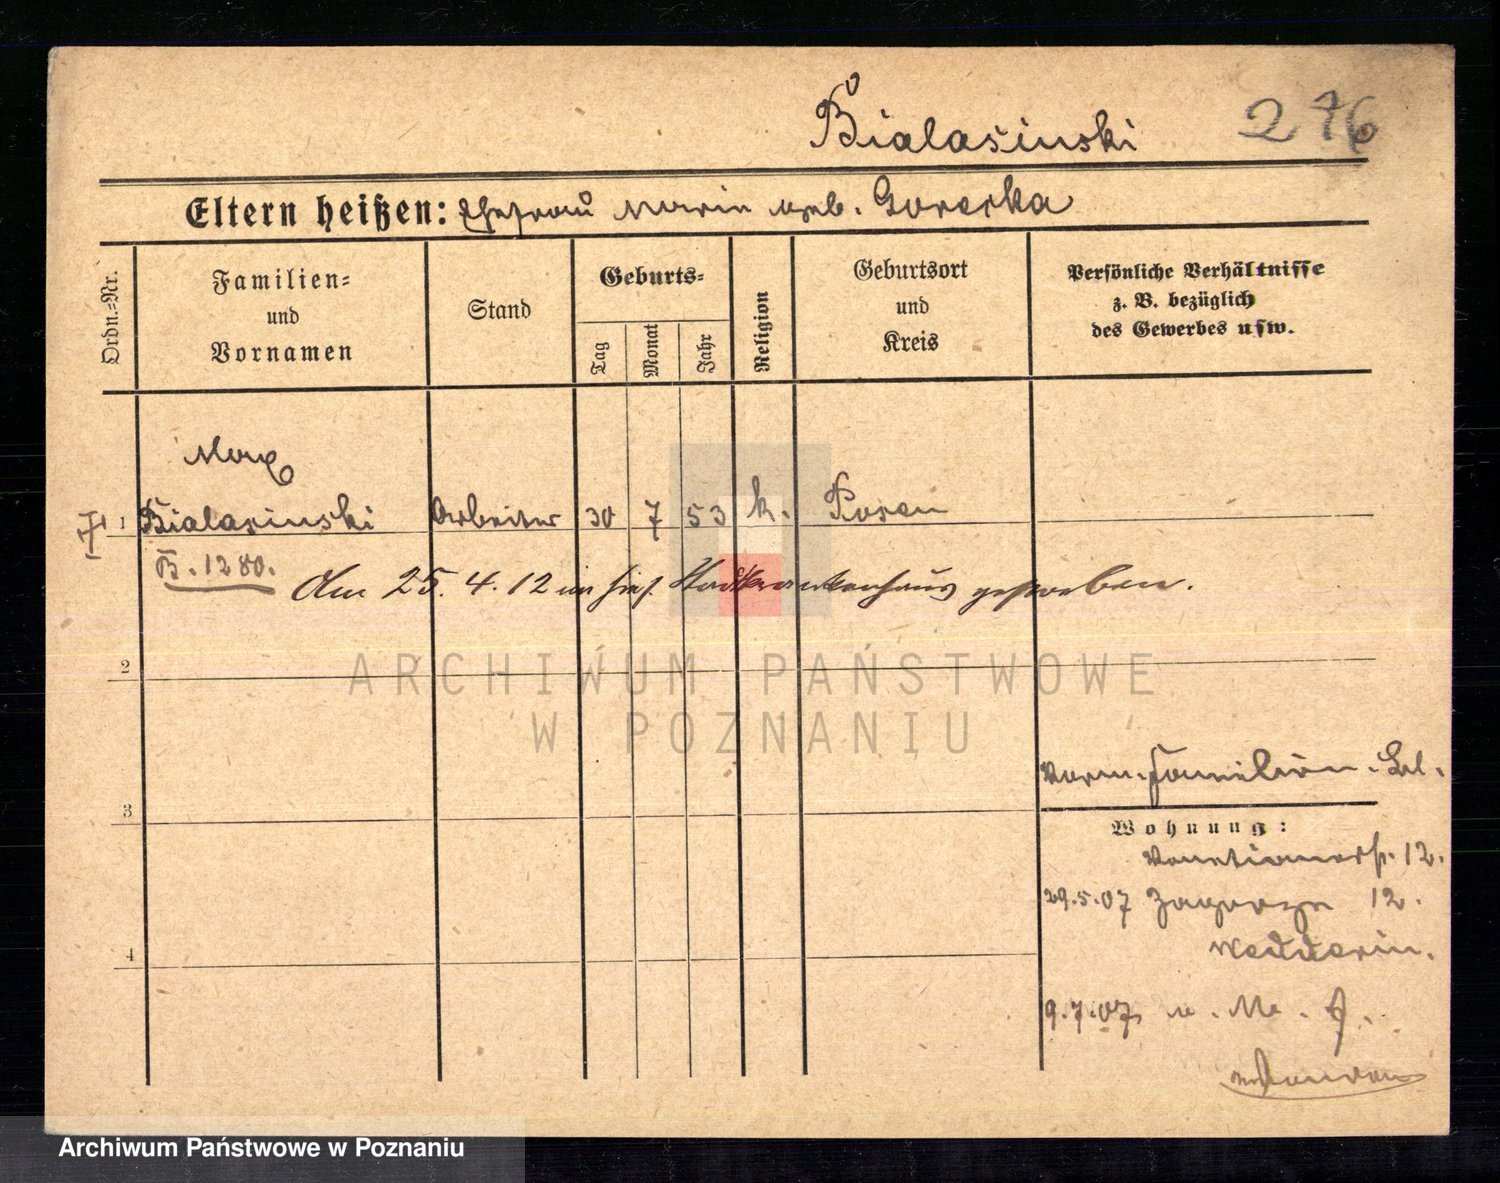 Bialasinski 276
Eltern heißen: Ehefrau Marie geb. Gorecka
Ordn.-Nr.
Familien-
und
Vornamen
Stand
Geburts-
Tag
Monat
Jahr
Religion
Geburtsort
und
Kreis
Persönliche Verhältnisse
z. B. bezüglich
des Gewerbes usw.
Max
1 Bialasinski Arbeiter 30 7 53 k. Posen
B. 1280.
Am 25. 4. 12 im hies. Stadtkrankenhaus gestorben.
2
ARCHIWUM PAŃSTWOWE
W POZNANIU
3
Vorm. Familien. Bl.
Wohnung:
Venetianerstr. 12.
4
29.5.07 Zagorze 12.
9.7.07 u. M. A.
vorhanden
Archiwum Państwowe w Poznaniu